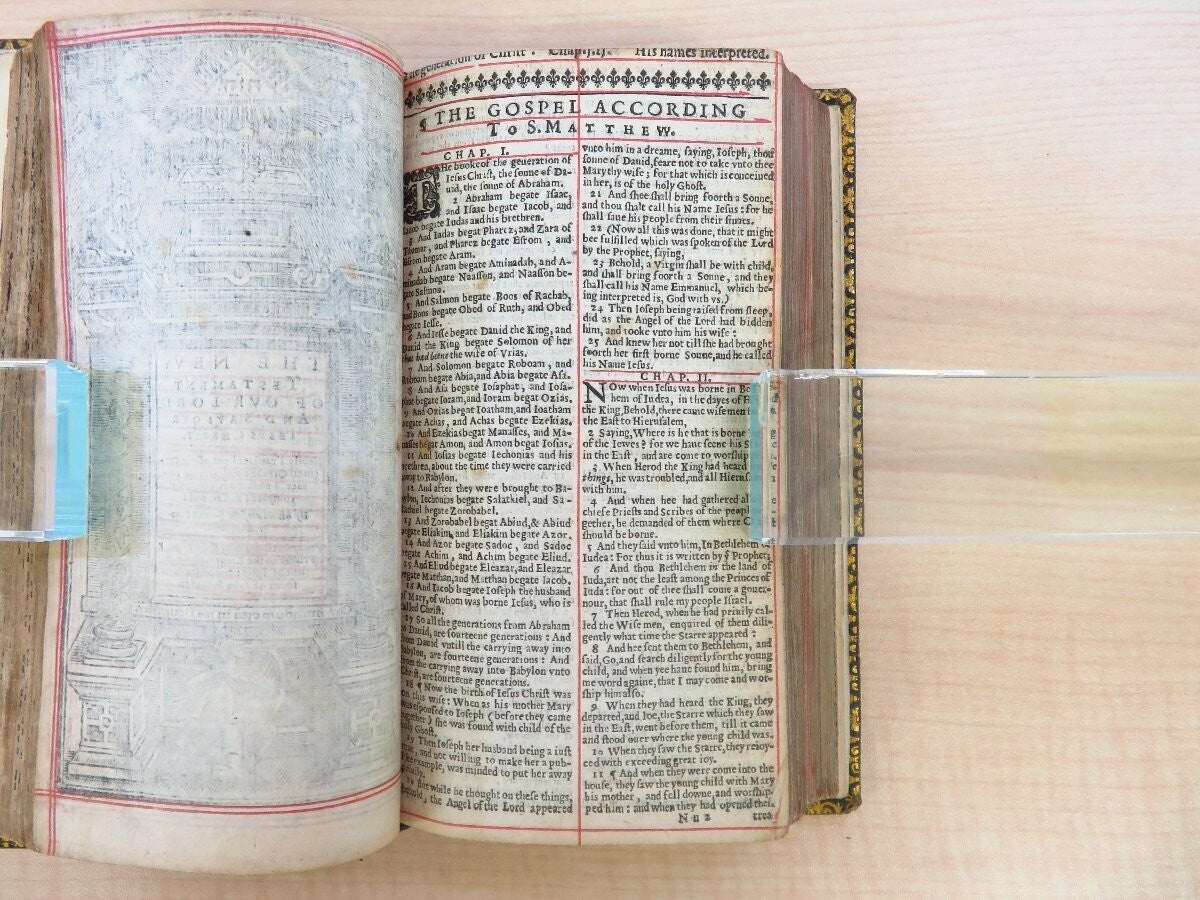 generation of Chriſt. Chap.j.ij. His names interpreted.
¶ THE GOSPEL ACCORDING
TO S. MATTHEW.
CHAP. I.
THe booke of the generation of
Ieſus Chriſt, the ſonne of Da-
uid, the ſonne of Abraham.
2 Abraham begate Iſaac,
and Iſaac begate Iacob, and
Iacob begate Iudas and his brethren.
3 And Iudas begat Pharez, and Zara of
Thamar, and Pharez begate Eſrom, and
Eſrom begate Aram.
4 And Aram begate Aminadab, and A-
minadab begate Naaſſon, and Naaſſon be-
gate Salmon.
5 And Salmon begate Boos of Rachab,
and Boos begate Obed of Ruth, and Obed
begate Ieſſe.
6 And Ieſſe begate Dauid the King, and
Dauid the King begate Solomon of her
that had beene the wife of Vrias.
7 And Solomon begate Roboam, and
Roboam begate Abia, and Abia begate Aſa.
8 And Aſa begate Ioſaphat, and Ioſa-
phat begate Ioram, and Ioram begat Ozias.
9 And Ozias begat Ioatham, and Ioatham
begate Achas, and Achas begate Ezekias.
10 And Ezekias begat Manaſſes, and Ma-
naſſes begat Amon, and Amon begat Ioſias.
11 And Ioſias begate Iechonias and his
brethren, about the time they were carried
away to Babylon.
12 And after they were brought to Ba-
bylon, Iechonias begate Salathiel, and Sa-
lathiel begate Zorobabel.
13 And Zorobabel begat Abiud, & Abiud
begate Eliakim, and Eliakim begate Azor.
14 And Azor begate Sadoc, and Sadoc
begate Achim, and Achim begate Eliud.
15 And Eliud begate Eleazar, and Eleazar
begate Matthan, and Matthan begate Iacob.
16 And Iacob begate Ioſeph the husband
of Mary, of whom was borne Ieſus, who is
called Chriſt.
17 So all the generations from Abraham
to Dauid, are fourteene generations: And
from Dauid vntill the carrying away into
Babylon, are fourteene generations: And
from the carrying away into Babylon vnto
Chriſt, are fourteene generations.
18 ¶ Now the birth of Ieſus Chriſt was
on this wiſe: When as his mother Mary
was eſpouſed to Ioſeph (before they came
together) ſhe was found with child of the
holy Ghoſt.
19 Then Ioſeph her husband being a iuſt
man, and not willing to make her a pub-
example, was minded to put her away
20 But while he thought on theſe things,
behold, the Angel of the Lord appeared
vnto him in a dreame, ſaying, Ioſeph, thou
ſonne of Dauid, feare not to take vnto thee
Mary thy wife: for that which is conceiued
in her, is of the holy Ghoſt.
21 And ſhee ſhall bring foorth a Sonne,
and thou ſhalt call his Name Ieſus: for he
ſhall ſaue his people from their ſinnes.
22 (Now all this was done, that it might
bee fulfilled which was ſpoken of the Lord
by the Prophet, ſaying,
23 Behold, a Virgin ſhall be with child,
and ſhall bring foorth a Sonne, and they
ſhall call his Name Emmanuel, which be-
ing interpreted is, God with vs.)
24 Then Ioſeph being raiſed from ſleep,
did as the Angel of the Lord had bidden
him, and tooke vnto him his wife:
25 And knew her not till ſhe had brought
foorth her firſt borne Sonne, and he called
his Name Ieſus.
CHAP. II.
NOw when Ieſus was borne in
hem of Iudea, in the dayes of
the King, Behold, there came wiſemen
the Eaſt to Hieruſalem,
2 Saying, Where is he that is borne
of the Iewes? for we haue ſeene his
in the Eaſt, and are come to worſhip
3 When Herod the King had heard
things, he was troubled, and all
with him.
4 And when hee had gathered
chiefe Prieſts and Scribes of the
gether, he demanded of them where
ſhould be borne.
5 And they ſaid vnto him, In Bethlehem
Iudea: For thus it is written by ẏ Prophet,
6 And thou Bethlehem in the land of
Iuda, art not the leaſt among the Princes of
Iuda: for out of thee ſhall come a gouer-
nour, that ſhall rule my people Iſrael.
7 Then Herod, when he had priuily cal-
led the Wiſe men, enquired of them dili-
gently what time the Starre appeared:
8 And hee ſent them to Bethlehem, and
ſaid, Go, and ſearch diligently for the young
child, and when yee haue found him, bring
me word againe, that I may come and wor-
ſhip him alſo.
9 When they had heard the King, they
departed, and loe, the Starre which they ſaw
in the Eaſt, went before them, till it came
and ſtood ouer where the young child was.
10 When they ſaw the Starre, they reioy-
ced with exceeding great ioy.
11 ¶ And when they were come into the
houſe, they ſaw the young child with Mary
his mother, and fell downe, and worſhip-
ped him: and when they had opened their
Nn2 trea